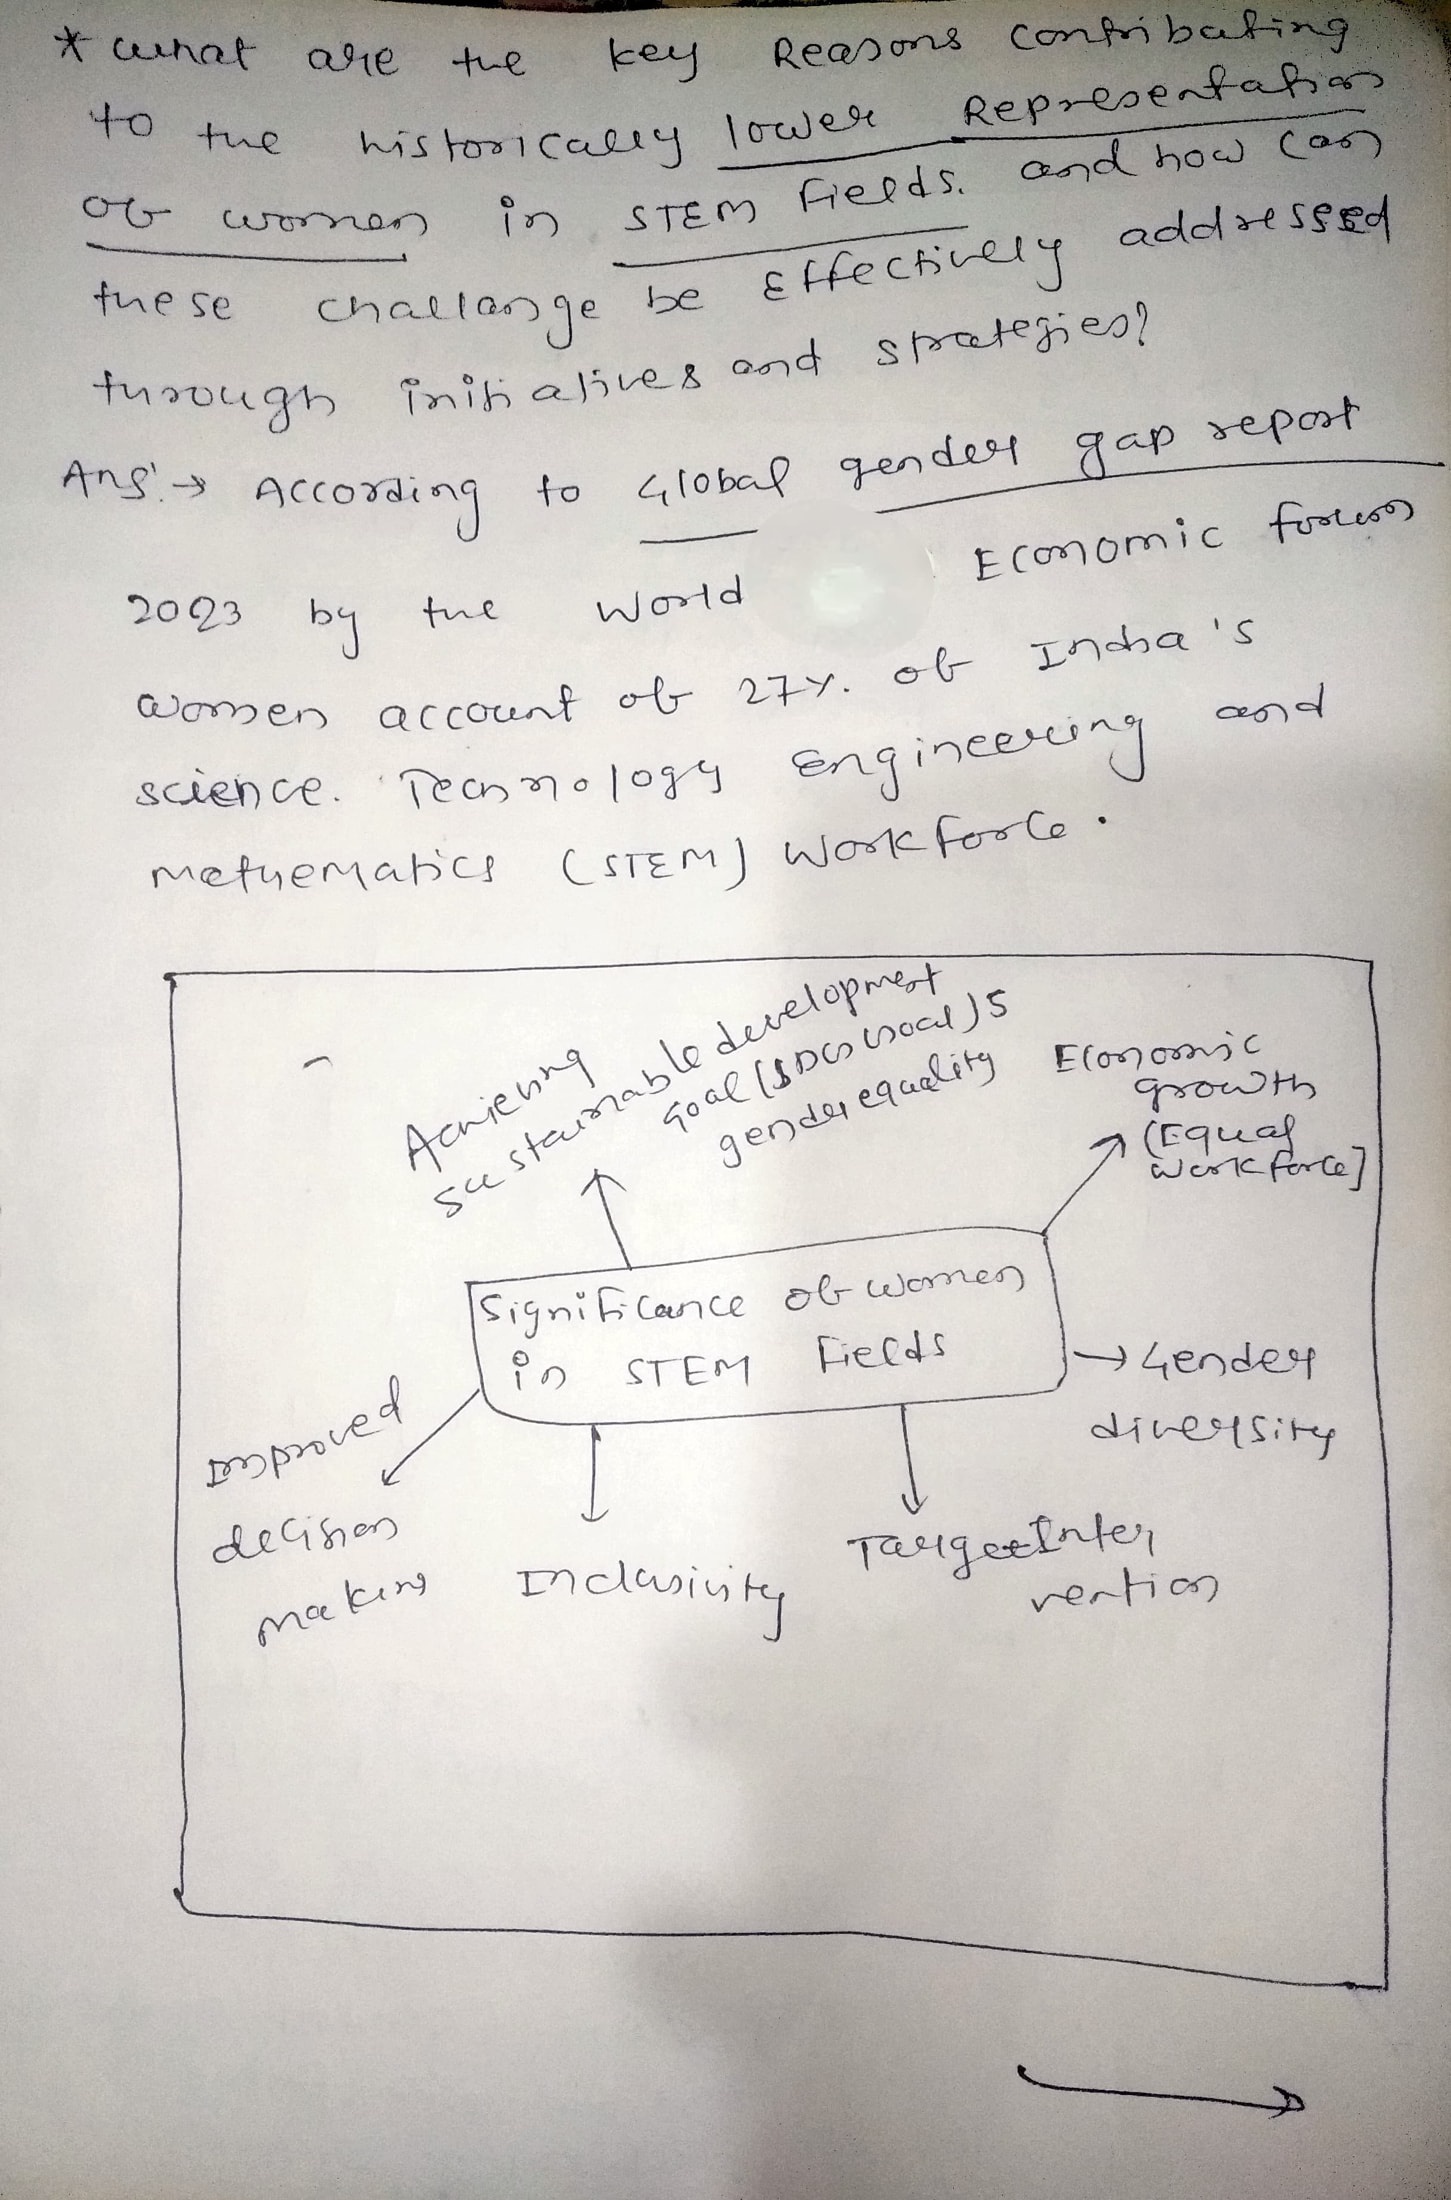 * what are the key Reasons contributing
to the historically lower Representation
of women in STEM fields. and how can
these challange be Effectively addressed
through initiatives and strategies?
Ans:→ According to Global gender gap report
2023 by the World Economic forum
women account of 27%. of India's
science. Technology Engineering and
mathematics (STEM) Workforce.
Achieving
sustainable development
Goal (SDG Goal) 5
gender equality
Economic
growth
(Equal
workforce]
Significance of women
in STEM fields
→ Gender
diversity
Improved
decision
making
Inclusivity
Target Inter
vention